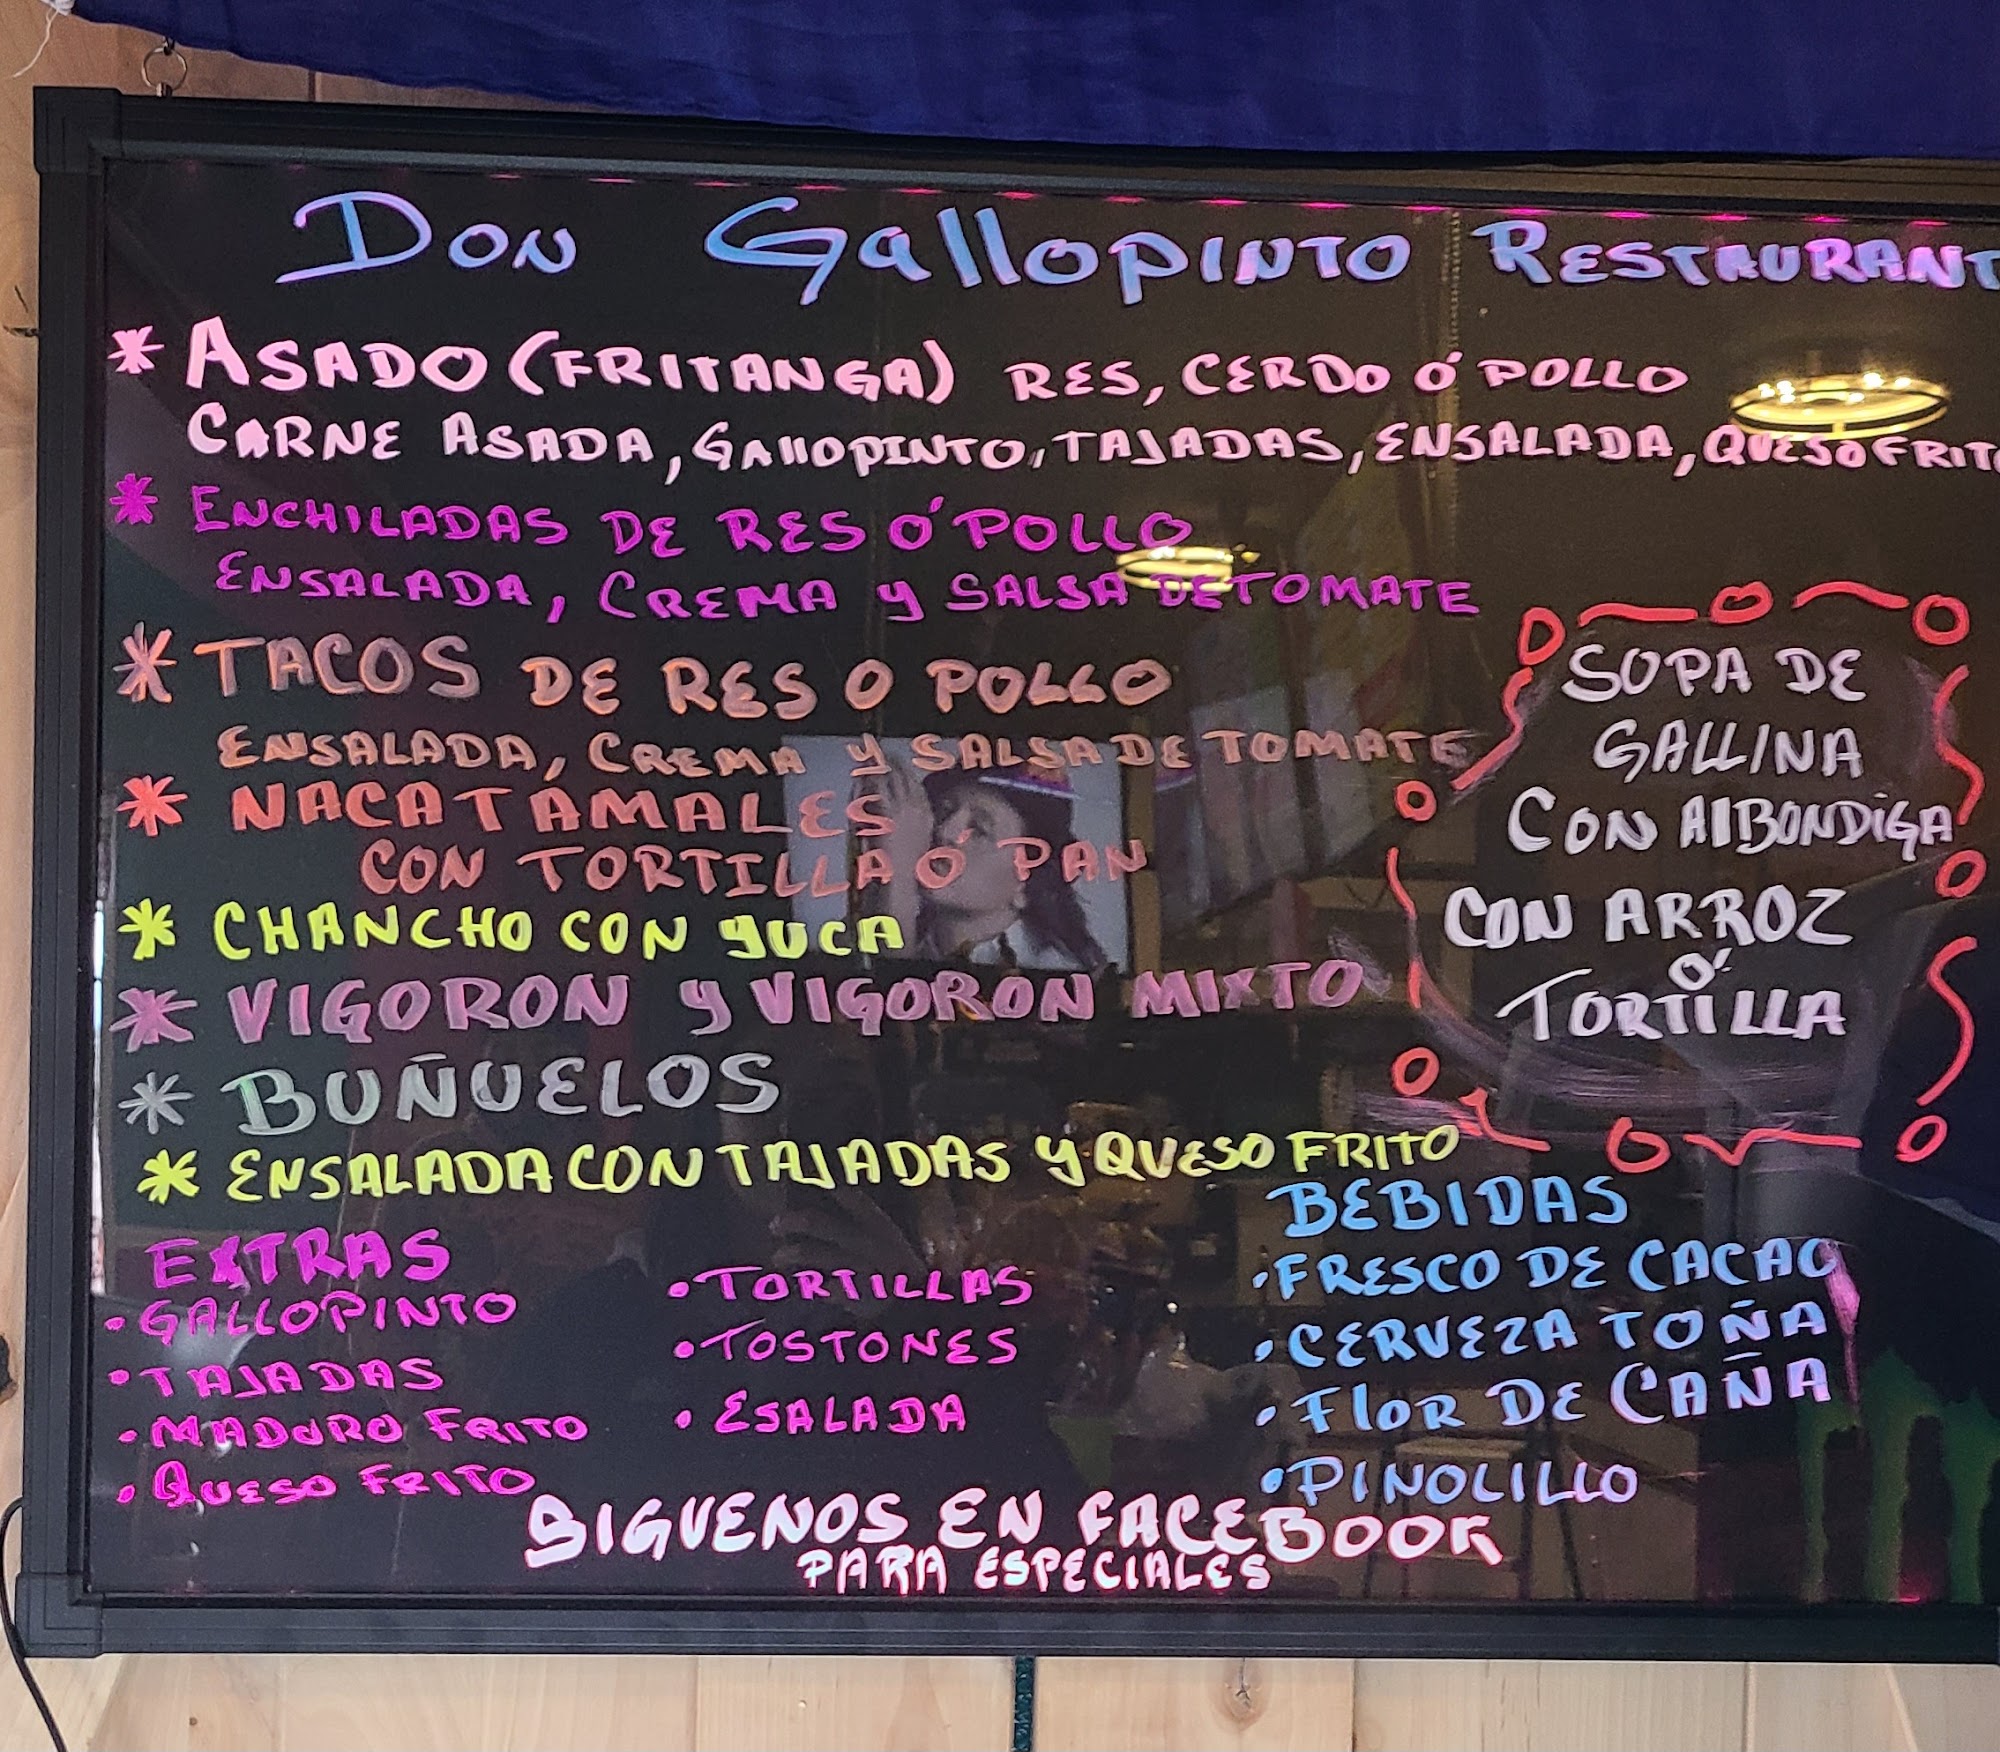 Don Gallopinto Restaurant
* Asado (Fritanga) Res, Cerdo ó Pollo
Carne Asada, Gallopinto, Tajadas, Ensalada, Queso Frito
* Enchiladas de Res ó Pollo
Ensalada, Crema y Salsa de Tomate
* Tacos de Res o Pollo
Ensalada, Crema y Salsa de Tomate
* Nacatamales
con Tortilla ó Pan
* Chancho con Yuca
* Vigoron y Vigoron Mixto
* Buñuelos
* Ensalada con Tajadas y Queso Frito
Sopa de
Gallina
Con Albondiga
con Arroz
ó
Tortilla
Extras
• Gallopinto
• Tajadas
• Maduro Frito
• Queso Frito
• Tortillas
• Tostones
• Esalada
Bebidas
• Fresco de Cacao
• Cerveza Toña
• Flor de Caña
• Pinolillo
Siguenos en Facebook
para especiales